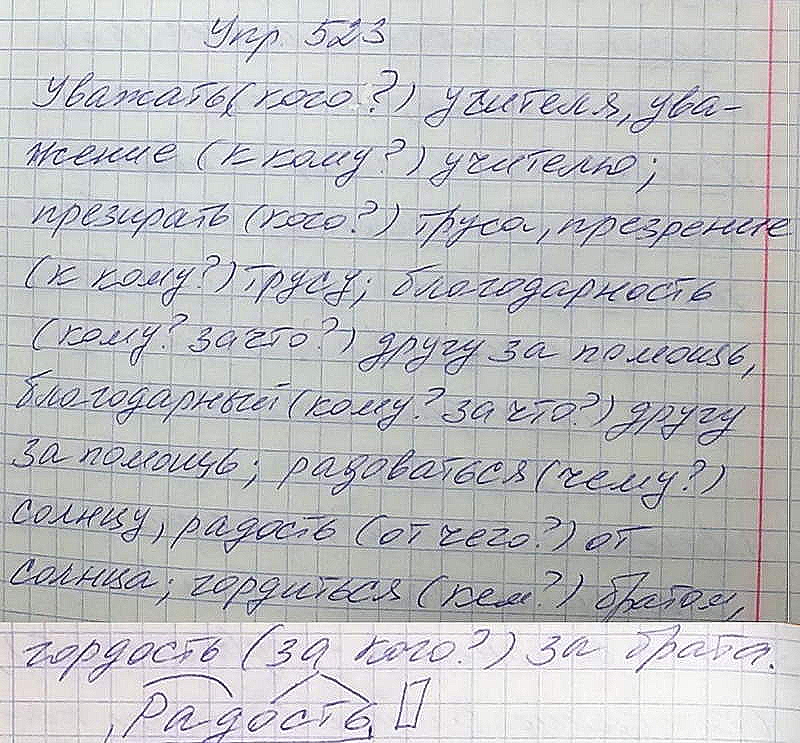 Упр. 523
Уважать (кого?) учителя, ува-
жение (к кому?) учителю;
презирать (кого?) труса, презрение
(к кому?) трусу; благодарность
(кому? за что?) другу за помощь,
благодарный (кому? за что?) другу
за помощь; радоваться (чему?)
солнцу, радость (от чего?) от
солнца; гордиться (кем?) братом,
гордость (за кого?) за брата.
Радость